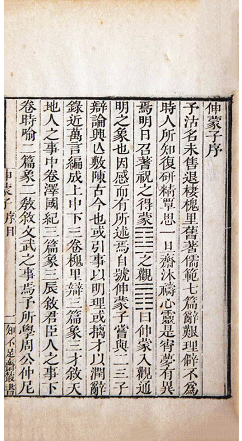 伸蒙子序
予沽名未售退棲槐里舊著儒範七篇辭艱理僻不為
時人所知復研精覃思一日齋沐禱心靈是宵夢有異
焉明日召蓍祝之得蒙䷃之觀䷓曰伸蒙入觀通
明之象也因感而有所述焉自號伸蒙子嘗與二三子
辯論興亾敷陳古今也或引事以明理或摛才以潤辭
錄近萬言編成上中下三卷槐里辯三篇象三才敘天
地人之事中卷澤國紀三篇象三辰敘君臣人之事下
卷時喻二篇象二教敘文武之事焉予所學周公仲尼
伸蒙子 序目
一 知不足齋叢書